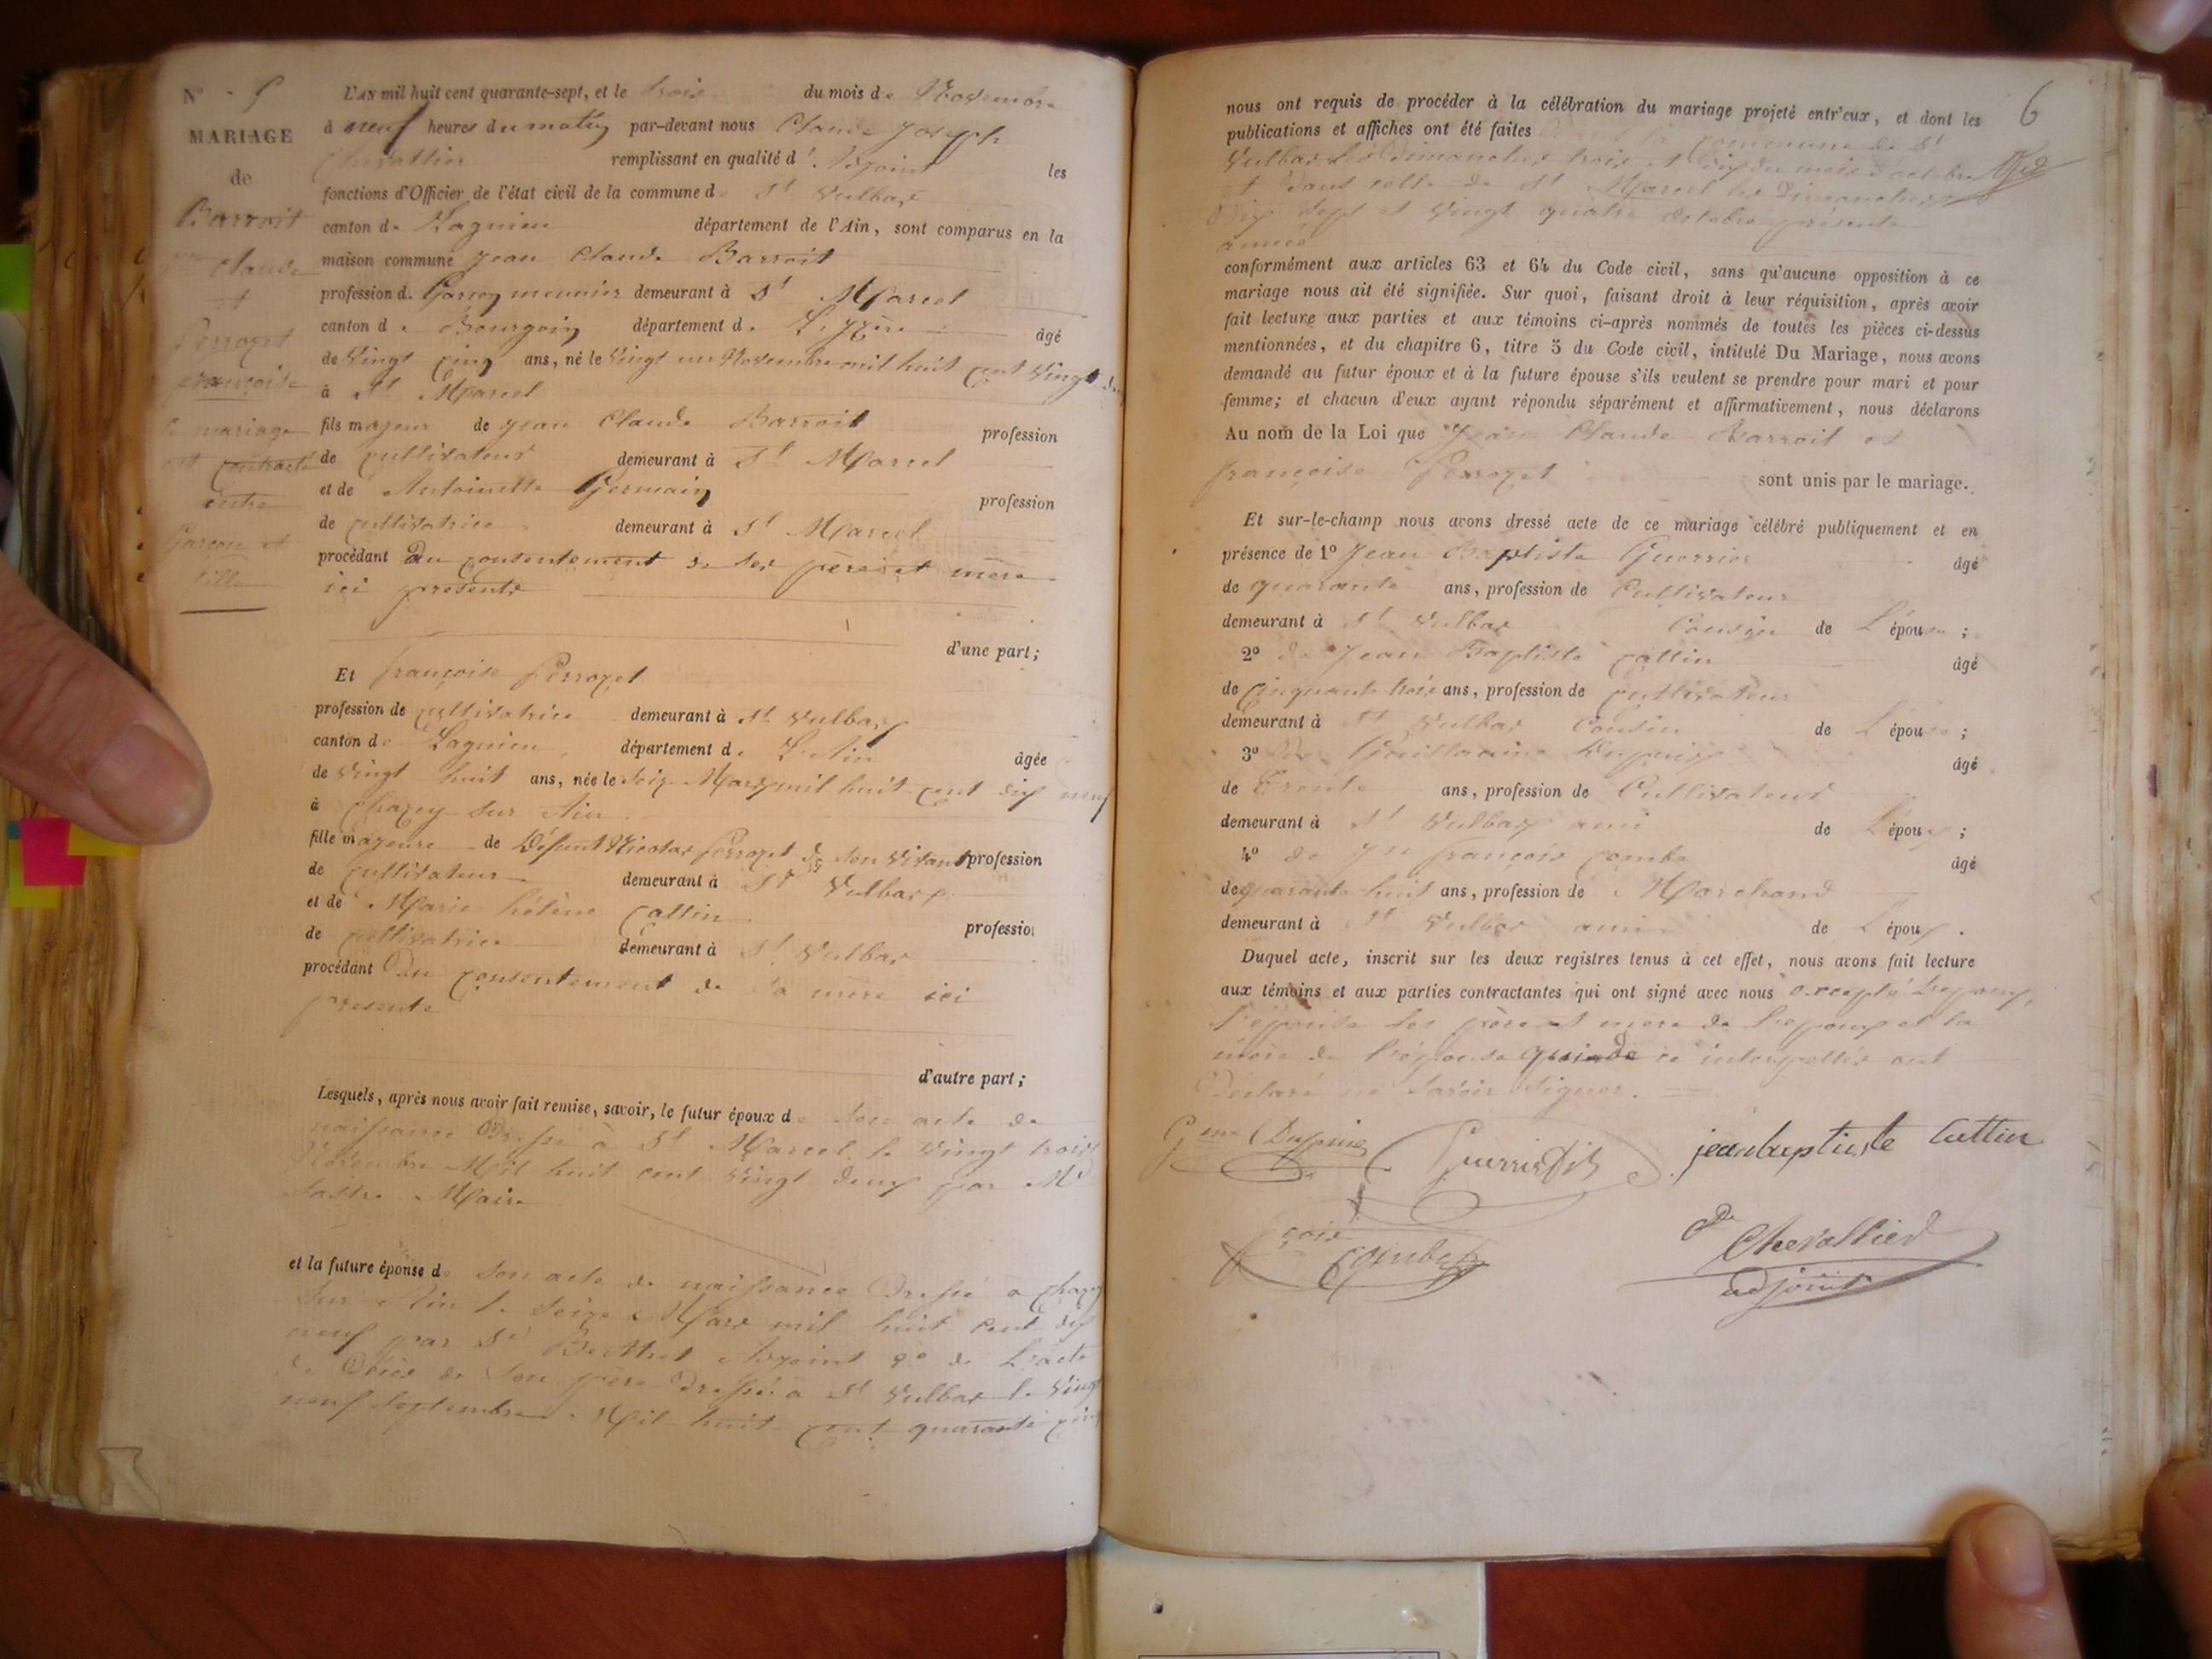 N° 5
MARIAGE
de
Barroit
Claude
et
Perrozet
françoise
mariage
contracté
entre
Garçon et
fille
L'AN mil huit cent quarante-sept, et le trois du mois de Novembre
à neuf heures du matin par-devant nous Claude Joseph
Chevallier remplissant en qualité d'Adjoint les
fonctions d'Officier de l'état civil de la commune de St Vulbas
canton de Lagnieu département de l'Ain, sont comparus en la
maison commune Jean Claude Barroit
profession de Garçon meunier demeurant à St Marcel
canton de Bourgoin département de L'Izère âgé
de Vingt cinq ans, né le Vingt un Novembre mil huit cent Vingt
à St Marcel
fils majeur de Jean Claude Barroit profession
de cultivateur demeurant à St Marcel
et de Antoinette Germain profession
de cultivatrice demeurant à St Marcel
procédant Du consentement de ses père et mère
ici présents
d'une part;
Et françoise Perrozet
profession de cultivatrice demeurant à St Vulbas
canton de Lagnieu département de L'Ain âgée
de Vingt huit ans, née le Seize Mars mil huit cent dix neuf
à Chazey sur Ain
fille majeure de Défunt Nicolas Perrozet de son vivant profession
de cultivateur demeurant à St Vulbas
et de Marie hélène Cattin profession
de cultivatrice demeurant à St Vulbas
procédant Du consentement de sa mère ici
présente
d'autre part;
Lesquels, après nous avoir fait remise, savoir, le futur époux de son acte de
naissance Dressé à St Marcel le Vingt trois
Novembre Mil huit cent Vingt deux par Mr
Maire
et la future épouse de son acte de naissance Dressé a Chazey
sur Ain le Seize Mars mil huit cent dix
neuf par Sr Berthet Adjoint 2° de L'acte
de Décès de son père Dressé a St Vulbas le Vingt
neuf Septembre Mil huit cent quarante cinq
6
nous ont requis de procéder à la célébration du mariage projeté entr'eux, et dont les
publications et affiches ont été faites commune de St
Vulbas les Dimanches trois et dix du mois d'octobre
et dans celle de St Marcel les Dimanches
Dix Sept et Vingt quatre octobre présente
année
conformément aux articles 63 et 64 du Code civil, sans qu'aucune opposition à ce
mariage nous ait été signifiée. Sur quoi, faisant droit à leur réquisition, après avoir
fait lecture aux parties et aux témoins ci-après nommés de toutes les pièces ci-dessus
mentionnées, et du chapitre 6, titre 5 du Code civil, intitulé Du Mariage, nous avons
demandé au futur époux et à la future épouse s'ils veulent se prendre pour mari et pour
femme; et chacun d'eux ayant répondu séparément et affirmativement, nous déclarons
Au nom de la Loi que Jean Claude Barroit et
françoise Perrozet sont unis par le mariage.
Et sur-le-champ nous avons dressé acte de ce mariage célébré publiquement et en
présence de 1° Jean Baptiste Guerrier âgé
de quarante ans, profession de Cultivateur
demeurant à St Vulbas Cousin de L'épouse;
2° de Jean Baptiste Cattin âgé
de Cinquante trois ans, profession de Cultivateur
demeurant à St Vulbas Cousin de L'épouse;
3° De Guillaume Dupuis âgé
de Trente ans, profession de Cultivateur
demeurant à St Vulbas ami de L'époux;
4° de françois Combe âgé
de quarante huit ans, profession de Marchand
demeurant à St Vulbas ami de L'époux.
Duquel acte, inscrit sur les deux registres tenus à cet effet, nous avons fait lecture
aux témoins et aux parties contractantes qui ont signé avec nous excepté L'epoux,
l'épouse les père et mère de L'epoux et la
mère de L'épouse qui de ce interpellés ont
Déclaré ne savoir signer.
Gme Dupuis Guerrier jeanbaptiste Cuttin
Combe Chevallier
adjoint